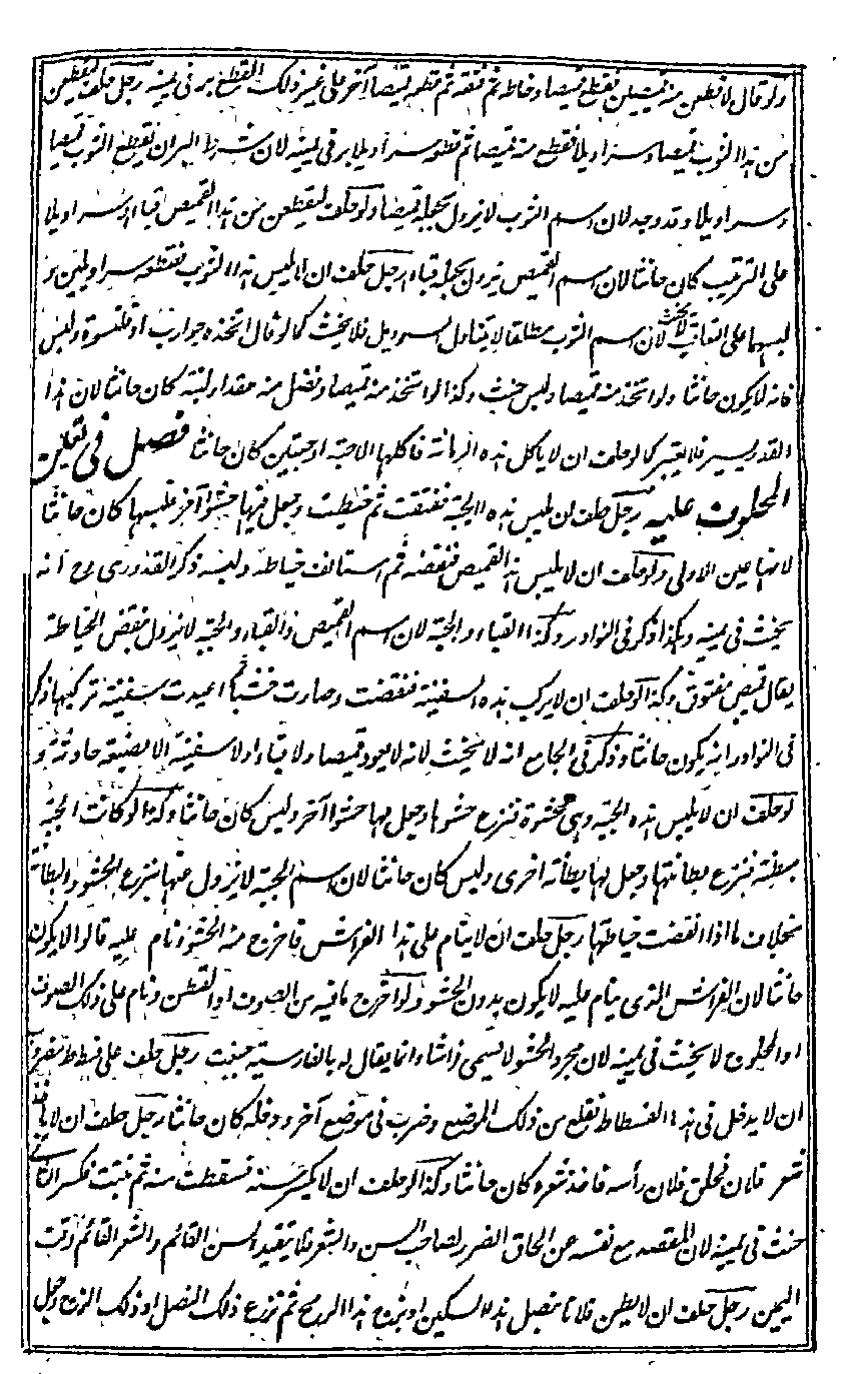 ولو قال لاقطعن منه قميصين فقطع قميصا وخاطه ثم فتقه ثم قطعه قميصا آخر على غير ذلك القطع بر فى يمينه رجل حلف ليقطعن
من هذا الثوب قميصا وسراويلا فقطع منه قميصا ثم قطعه سراويلا بر فى يمينه لان شرط البر ان يقطع الثوب قميصا
وسراويلا وقد وجد لان اسم الثوب لا يزول بجعله قميصا ولو حلف ليقطعن من هذا القميص قباء وسراويلا
على الترتيب كان حانثا لان اسم القميص يزول بجعله قباء رجل حلف ان لا يلبس هذا الثوب فقطعه سراويلين و
لبسهما على التعاقب لا يحنث لان اسم الثوب مطلقا لا يتناول السراويل فلا يحنث كما لو قال اتخذه جوارب او قلنسوة ولبس
فانه لا يكون حانثا ولو اتخذ منه قميصا ولبس حنث وكذا لو اتخذ منه قميصا وفضل منه مقدار لبنة كان حانثا لان هذا
القدر يسير فلا يعتبر كما لو حلف ان لا ياكل هذه الرمانة فاكلها الا حبة او حبتين كان حانثا فصل فى تعيين
المحلوف عليه رجل حلف ان لا يلبس هذه الجبة ففتقت ثم خيطت وجعل فيها حشوا آخر فلبسها كان حانثا
لانها عين الاولى ولو حلف ان لا يلبس هذا القميص فنقضه ثم استانف خياطه ولبسه ذكر القدورى رح انه
يحنث فى يمينه وهكذا ذكر فى النوادر وكذا القباء والجبة لان اسم القميص والقباء والجبة لا يزول بنقض الخياطة
يقال قميص مفتوق وكذا لو حلف ان لا يركب هذه السفينة فنقضت وصارت خشبا ثم اعيدت سفينة فركبها ذكر
فى النوادر انه يكون حانثا وذكر فى الجامع انه لا يحنث لانه لا يعود قميصا ولا قباء ولا سفينة الا بصنعة حادثة و
لو حلف ان لا يلبس هذه الجبة وهى محشوة فنزع حشوها وجعل بها حشوا آخر ولبس كان حانثا وكذا لو كانت الجبة
مبطنة فنزع بطانتها وجعل لها بطانة اخرى ولبس كان حانثا لان اسم الجبة لا يزول عنها بنزع الحشو والبطانة
بخلاف ما اذا انقضت خياطتها رجل حلف ان لا ينام على هذا الفراش فاخرج منه الحشو ونام عليه قالوا لا يكون
حانثا لان الفراش الذى ينام عليه لا يكون بدون الحشو ولو اخرج ما فيه من الصوف او القطن ونام على ذلك الصوف
او المحلوج لا يحنث فى يمينه لان مجرد الحشو لا يسمى فراشا وانما يقال له بالفارسية رجل حلف على فسطاط مضروب
ان لا يدخل فى هذا الفسطاط فقلع من ذلك الموضع وضرب فى موضع آخر ودخله كان حانثا رجل حلف ان لا ياخذ
شعر فلان فحلق فلان رأسه فاخذ شعره كان حانثا وكذا لو حلف ان لا يكسر سنه فسقطت سنه ثم نبتت فكسر الثانى
حنث فى يمينه لان المقصد منع نفسه عن الحاق الضرر لصاحب السن والشعر فلا يتقيد بالسن القائم والشعر القائم وقت
اليمين رجل حلف ان لا يطعن فلانا بنصل هذا السكين او بزج هذا الرمح ثم نزع ذلك النصل او ذلك الزج وجعل